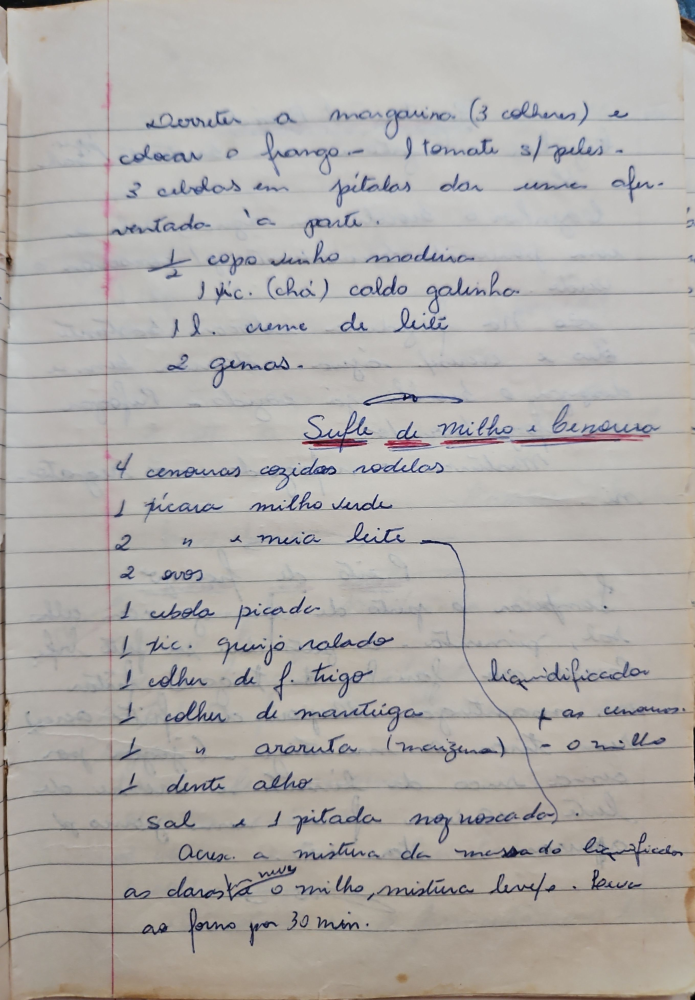 Derreter a margarina (3 colheres) e
colocar o frango - 1 tomate s/ peles -
3 cebolas em pétalas dar uma afer-
ventada à parte.
1/2 copo vinho madeira
1 xic. (chá) caldo galinha
1 l. creme de leite
2 gemas.
Sufle de Milho e Cenoura
4 cenouras cozidas rodelas
1 xícara milho verde
2 " e meia leite
2 ovos
1 cebola picada
1 xic. queijo ralado
1 colher de f. trigo
liquidificador
1 colher de manteiga
+ as cenouras.
1 " araruta (maizena)
- o milho
1 dente alho
sal e 1 pitada noz noscada.
Acresc. a mistura da massa do liquificador
as claras neve o milho, mistura leve/e. Leva
ao forno por 30 min.